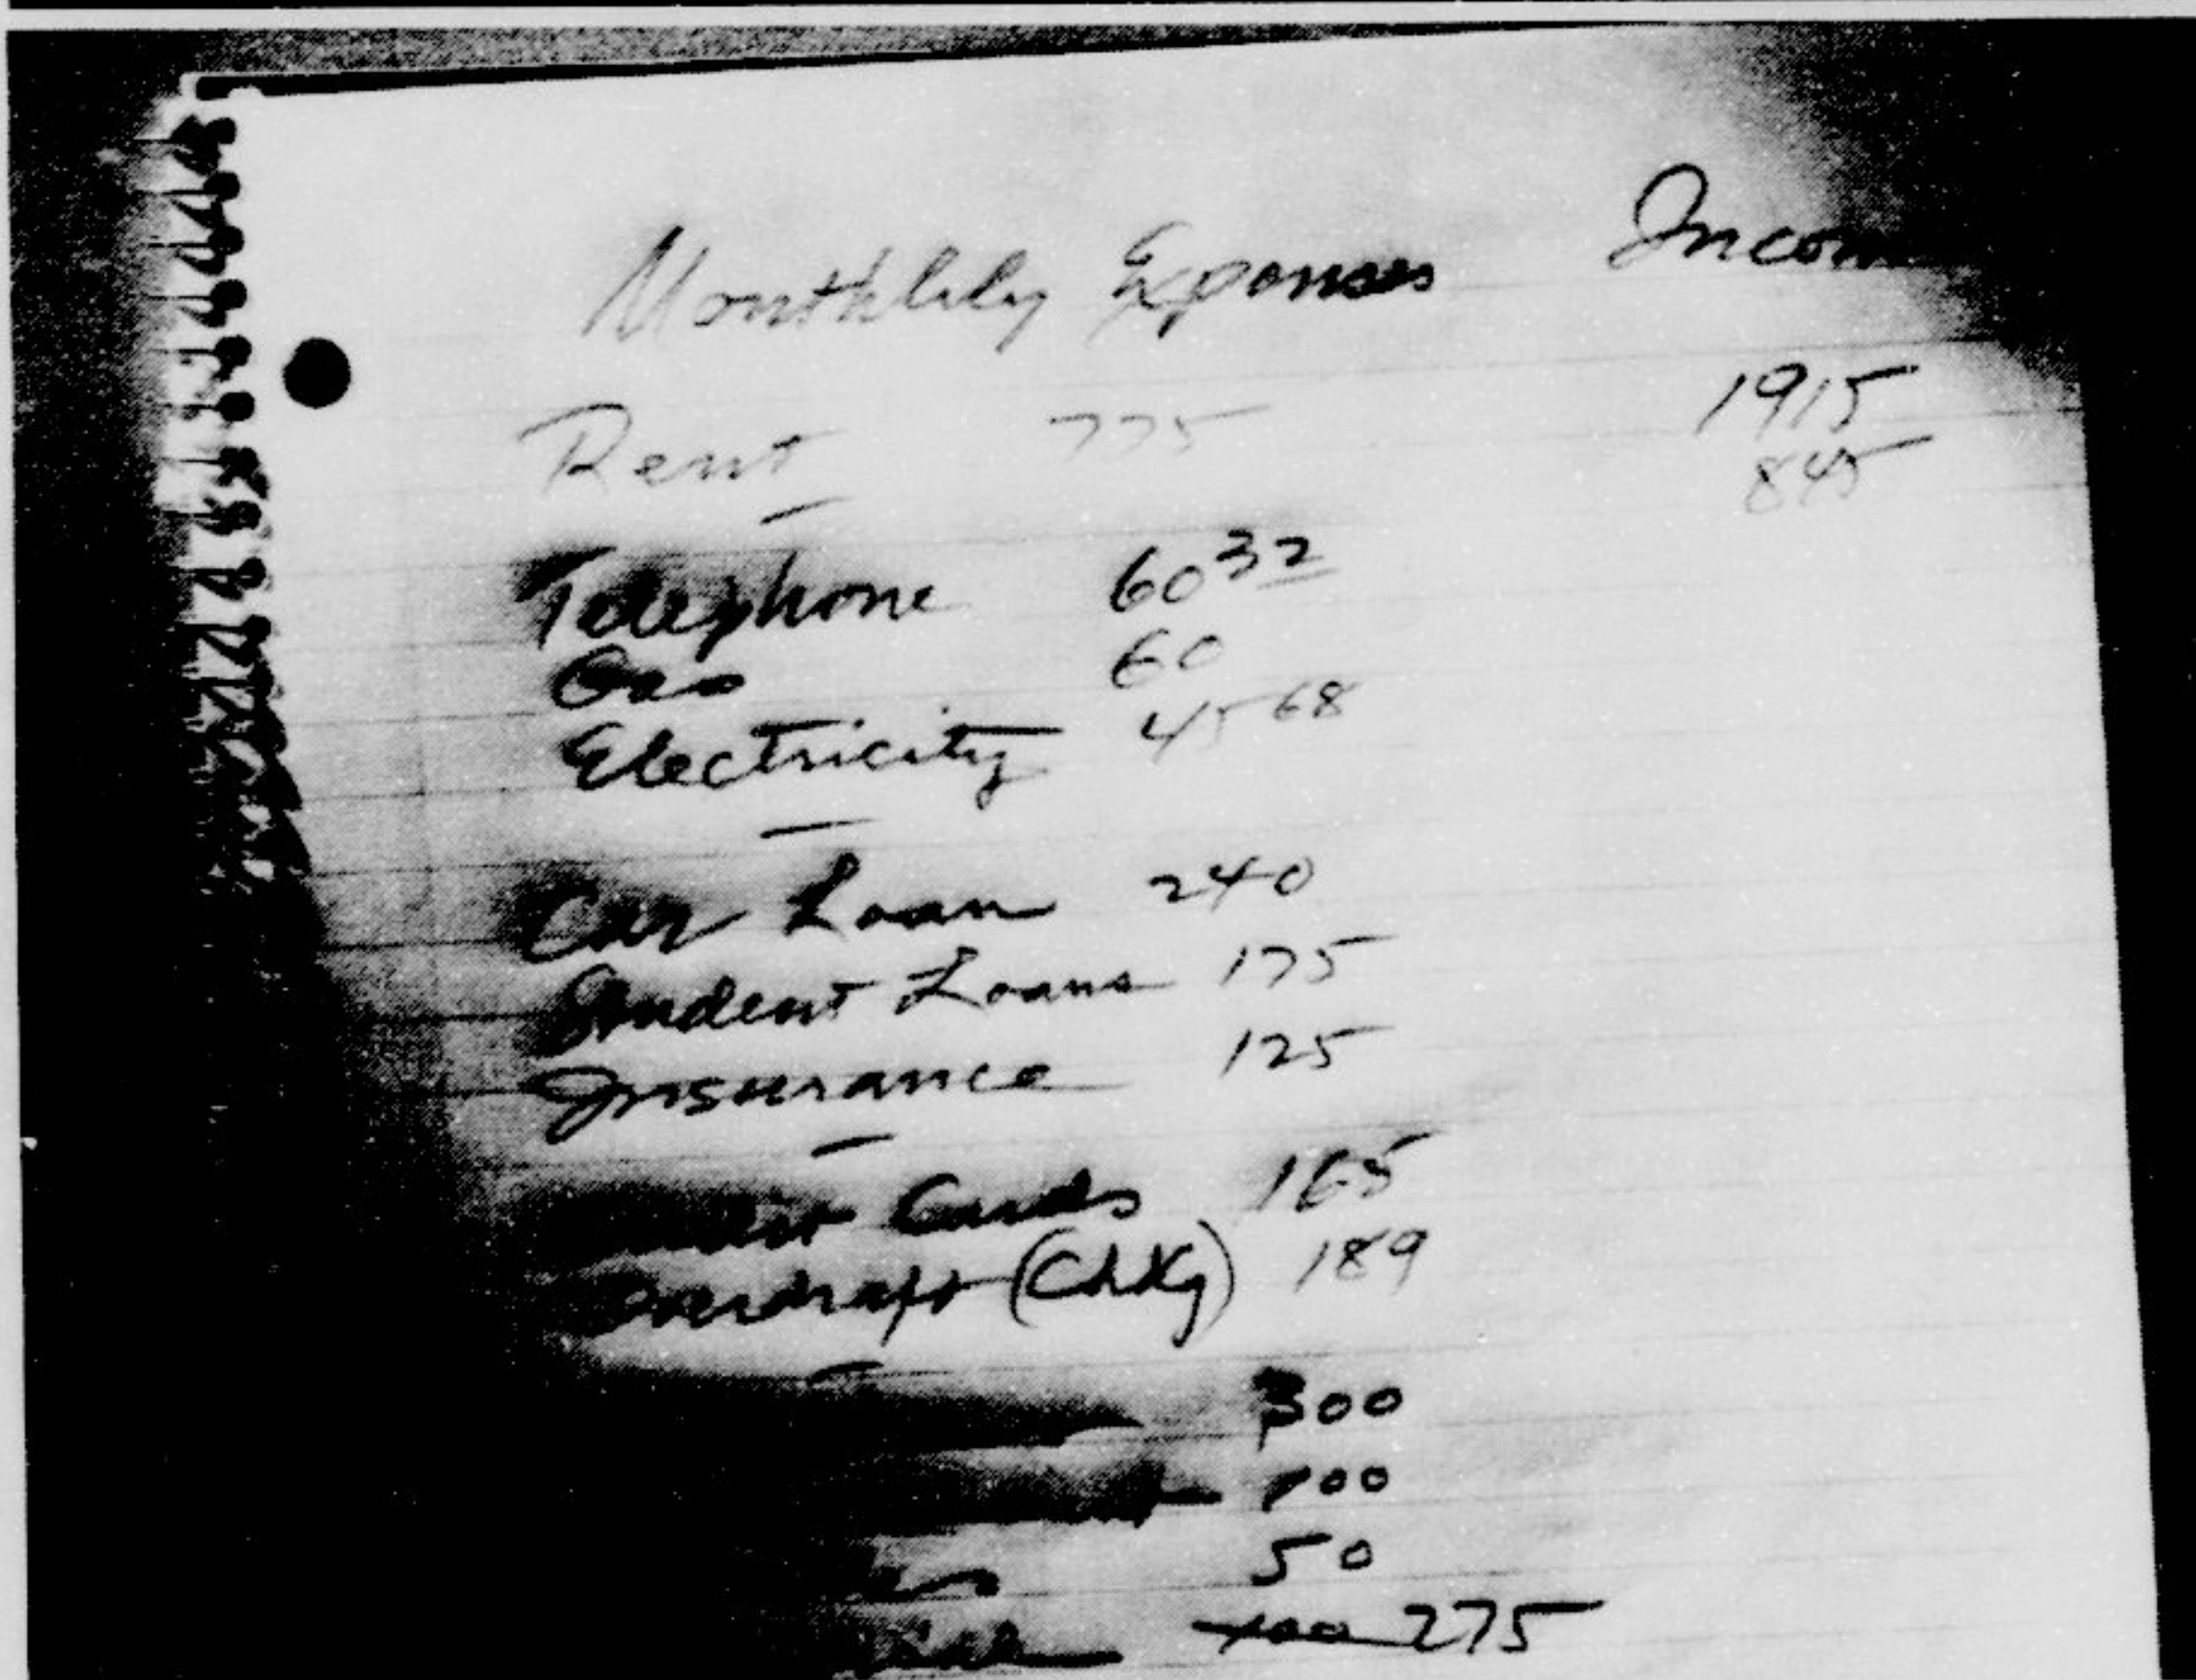 Monthlily Expenses Incom
Rent 775 1915
845
Telephone 60 32
Gas 60
Electricity 45 68
Car Loan 240
Student Loans 175
Insurance 125
Cards 165
Overdraft (ChKg) 189
300
100
50
275